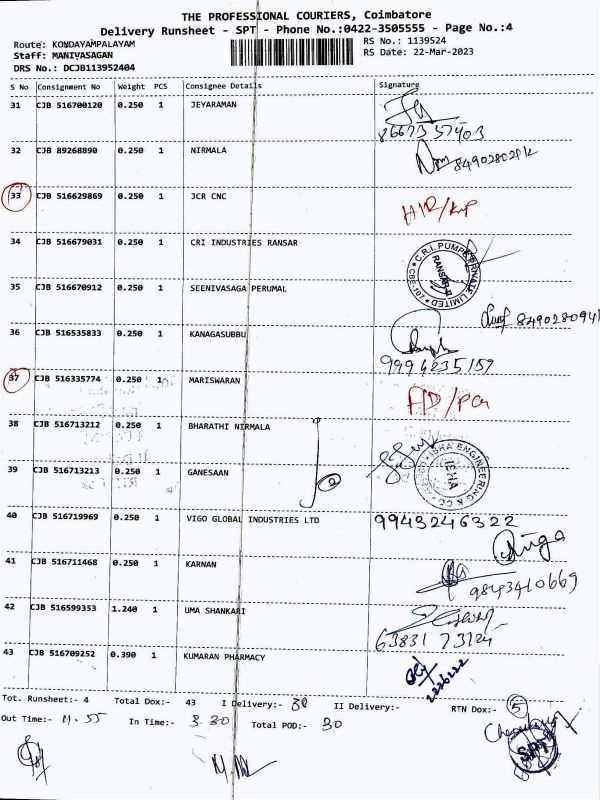 THE PROFESSIONAL COURIERS, Coimbatore
Delivery Runsheet - SPT - Phone No.:0422-3505555 - Page No.:4
Route: KONDAYAMPALAYAM
RS No.: 1139524
Staff: MANIVASAGAN
RS Date: 22-Mar-2023
DRS No.: DCJB113952404
S No Consignment No Weight PCS Consignee Details Signature
31 CJB 516700120 0.250 1 JEYARAMAN
8667357403
32 CJB 89268890 0.250 1 NIRMALA
33 CJB 516629869 0.250 1 JCR CNC
34 CJB 516679031 0.250 1 CRI INDUSTRIES RANSAR
C.R.I. PUMPS PRIVATE LIMITED
35 CJB 516670912 0.250 1 SEENIVASAGA PERUMAL
36 CJB 516535833 0.250 1 KANAGASUBBU
9994235157
37 CJB 516335774 0.250 1 MARISWARAN
38 CJB 516713212 0.250 1 BHARATHI NIRMALA
39 CJB 516713213 0.250 1 GANESAAN
ISHA ENGINEERING & CO
ISHA
40 CJB 516719969 0.250 1 VIGO GLOBAL INDUSTRIES LTD 9943246322
41 CJB 516711468 0.250 1 KARNAN
9843410669
42 CJB 516599353 1.240 1 UMA SHANKARI
63831 73124
43 CJB 516709252 0.390 1 KUMARAN PHARMACY
2226222
Tot. Runsheet:- 4 Total Dox:- 43 I Delivery:- 30 II Delivery:- RTN Dox:- 5
Out Time:- 11.55 In Time:- 3.30 Total POD:- 30
SPT